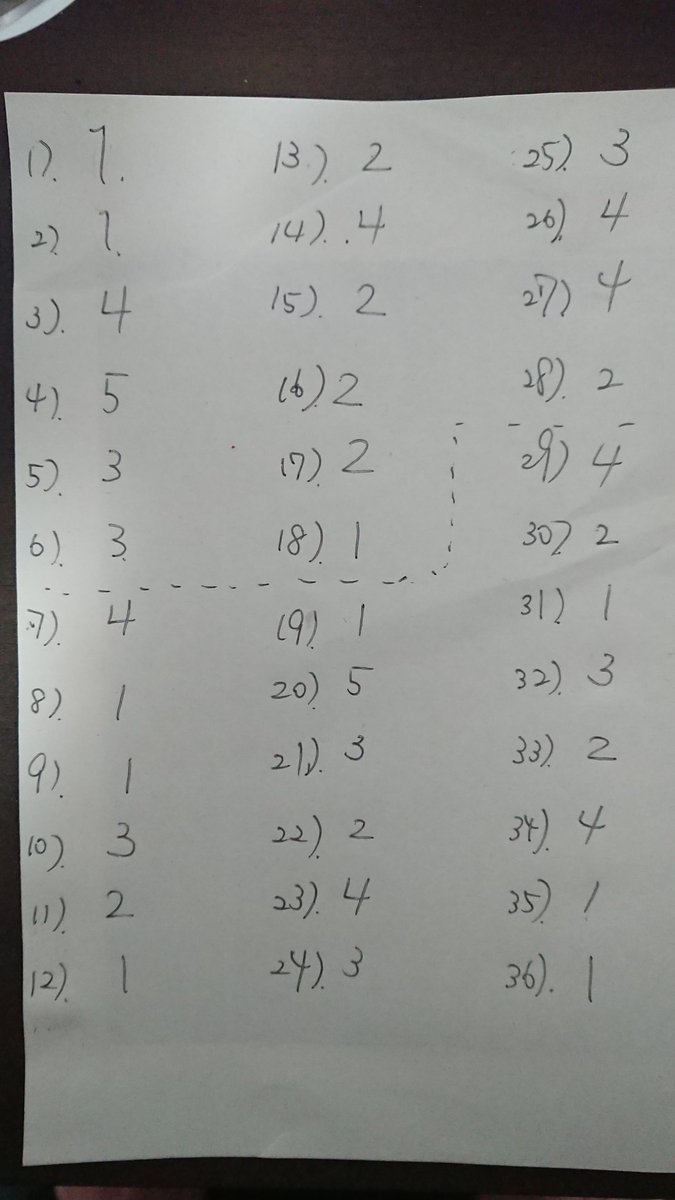 1). 1.
2) 1.
3). 4
4). 5
5). 3
6). 3
7). 4
8). 1
9). 1
10). 3
11). 2
12). 1
13.) 2
14). 4
15). 2
16) 2
17) 2
18) 1
19) 1
20) 5
21). 3
22) 2
23). 4
24). 3
25). 3
26). 4
27) 4
28). 2
29) 4
30) 2
31) 1
32). 3
33). 2
34). 4
35) 1
36). 1